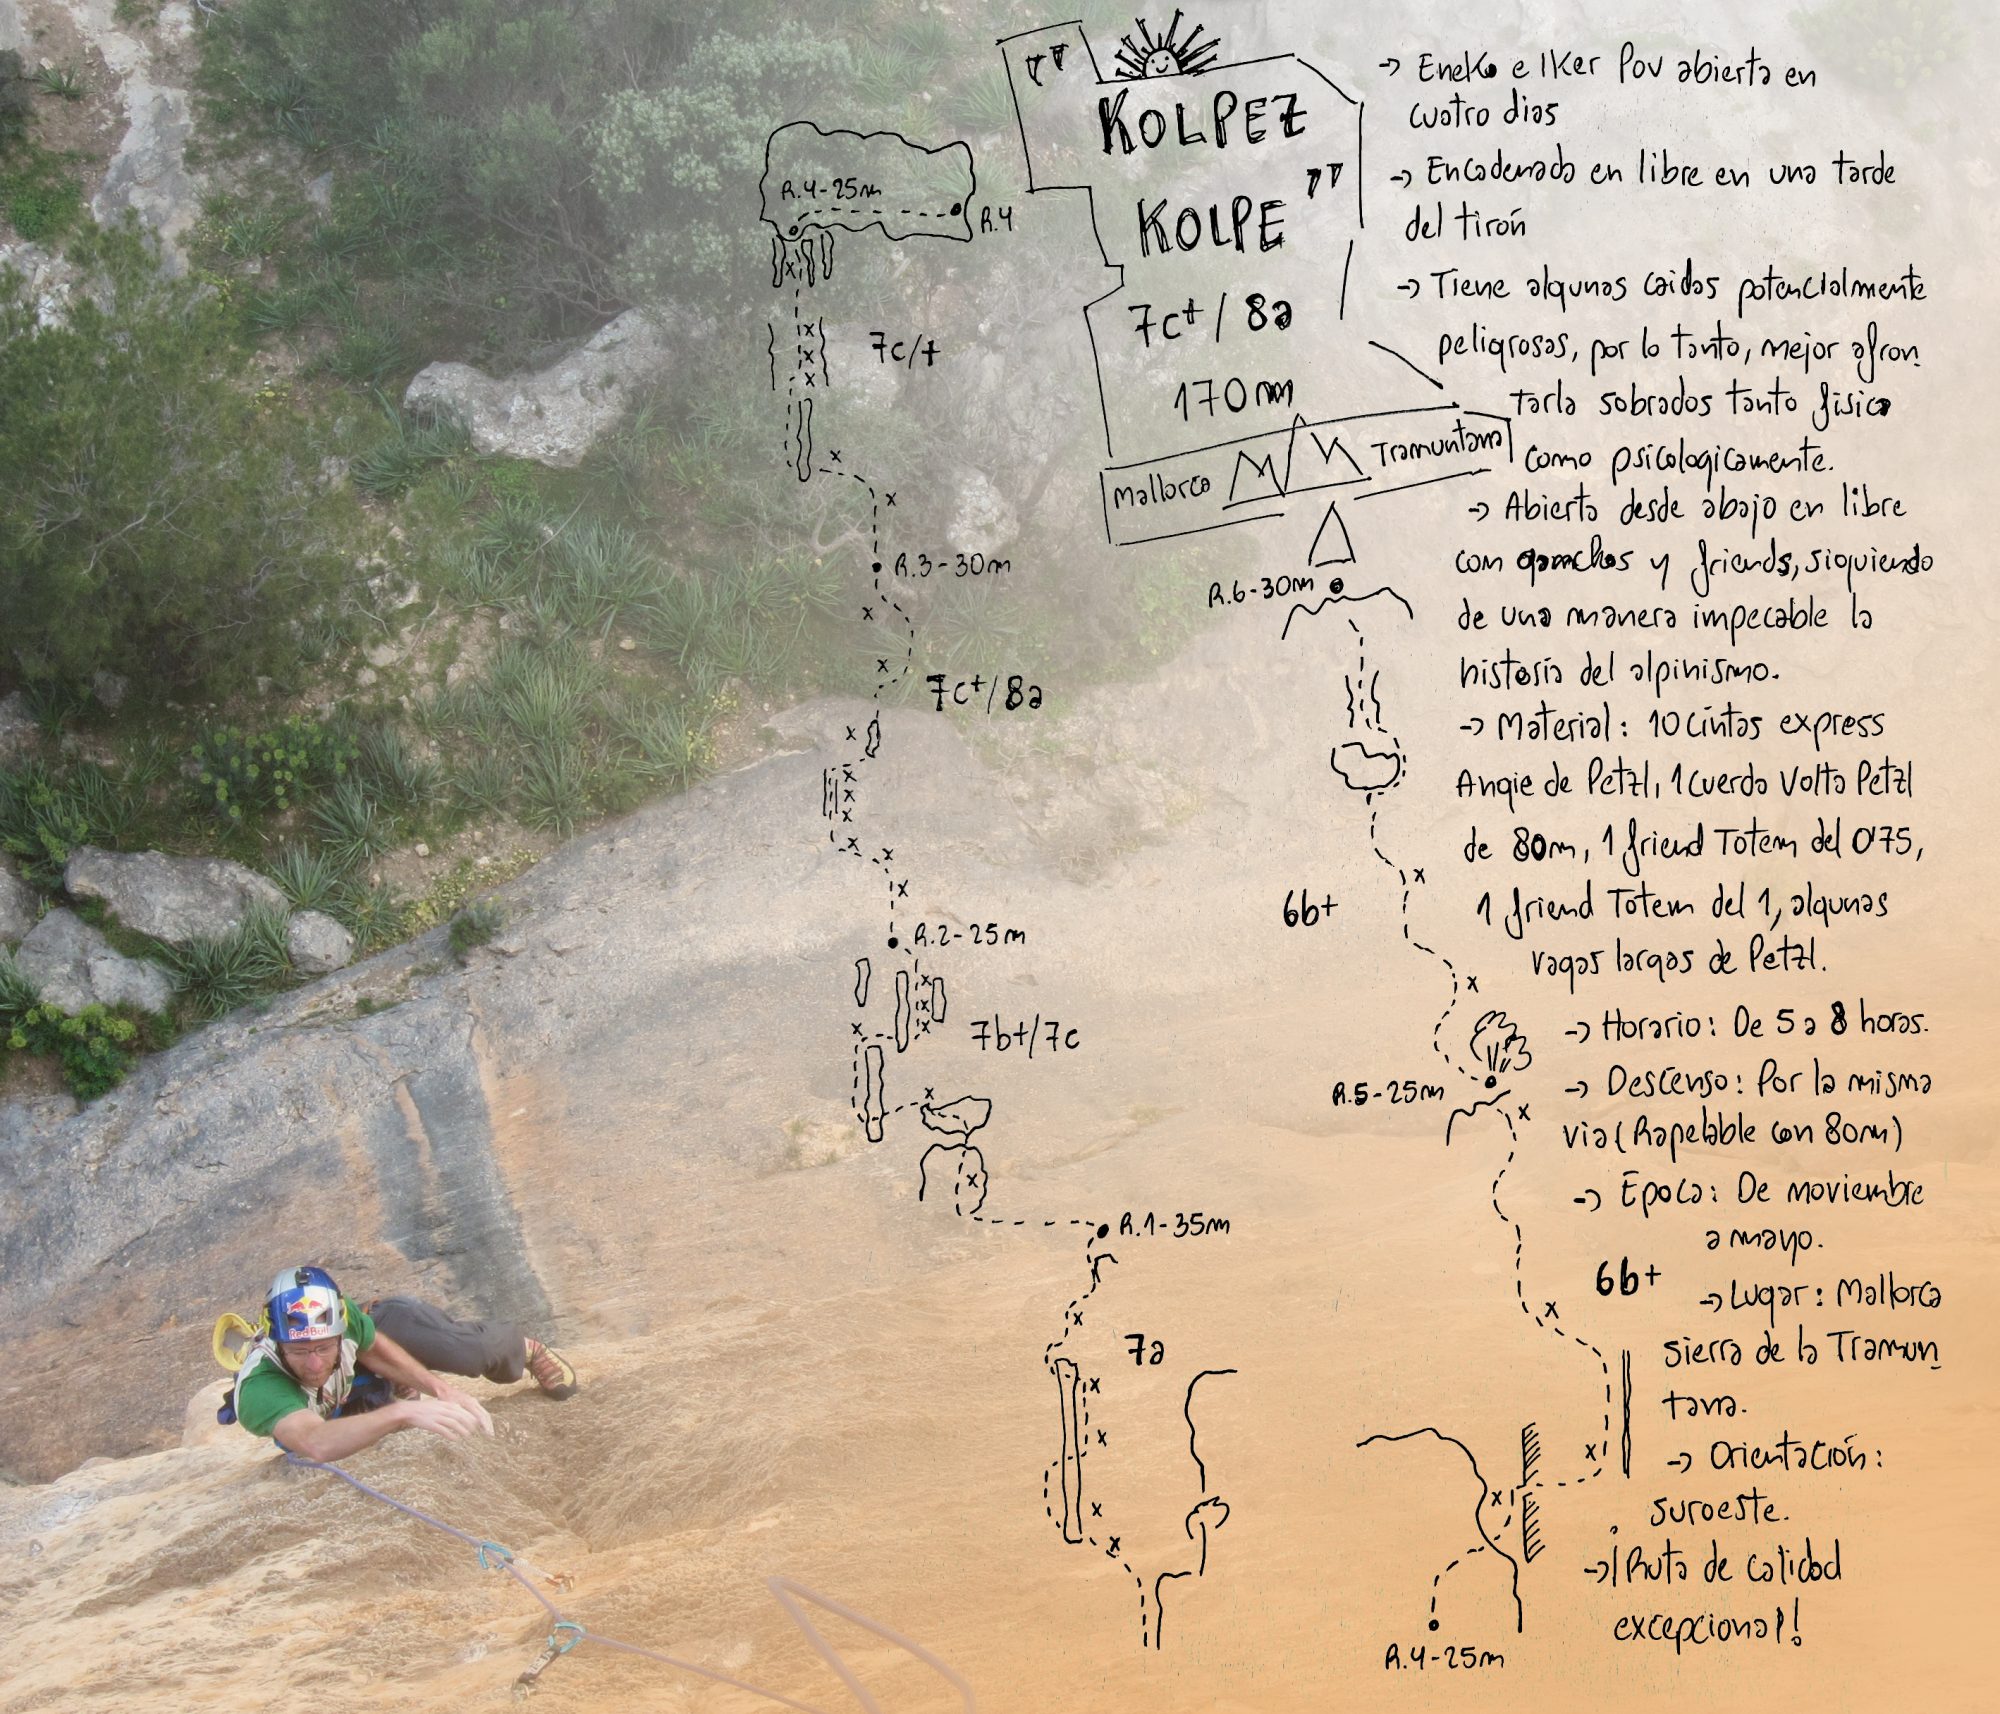 "KOLPEZ
KOLPE"
7c+/8a
170m
Mallorca
Tramuntana
→ Eneko e Iker Pou abierta en
cuatro dias
→ Encadenada en libre en una tarde
del tirón
→ Tiene algunas caidas potencialmente
peligrosas, por lo tanto, mejor afron
tarla sobrados tanto fisica
como psicologicamente.
→ Abierta desde abajo en libre
con ganchos y friends, siguiendo
de una manera impecable la
historia del alpinismo.
→ Material: 10 cintas express
Angie de Petzl, 1 cuerda Volta Petzl
de 80m, 1 friend Totem del 0'75,
1 friend Totem del 1, algunas
vagas largas de Petzl.
→ Horario: De 5 a 8 horas.
→ Descenso: Por la misma
via (Rapelable con 80m)
→ Epoca: De noviembre
a mayo.
→ Lugar: Mallorca
Sierra de la Tramun
tana.
→ Orientación:
suroeste.
→ ¡Ruta de calidad
excepcional!
R.4-25m
R.4
7c/+
R.3-30m
7c+/8a
R.2-25m
7b+/7c
R.1-35m
7a
R.6-30m
6b+
R.5-25m
6b+
R.4-25m
Red Bull